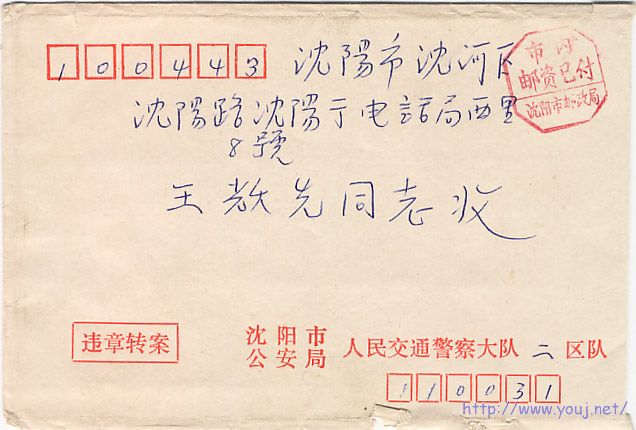 100443
沈陽市沈河区
沈陽路沈陽于电話局西里
8號
王 先同志收
市内
邮资已付
沈阳市邮政局
违章转案
沈阳市公安局 人民交通警察大队 二 区队
110031
http://www.youj.net/